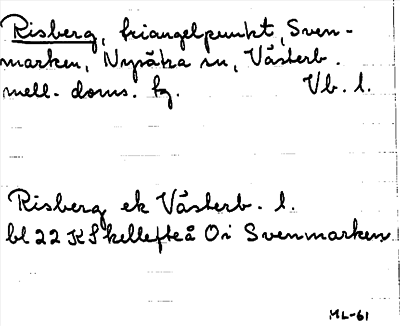 Risberg, triangelpunkt, Sven-
marken, Nysätra sn, Västerb.
mell. doms. fg. Vb. l.
Risberg ek Västerb. l.
bl 22 K Skellefteå Oi Svenmarken
ML-61